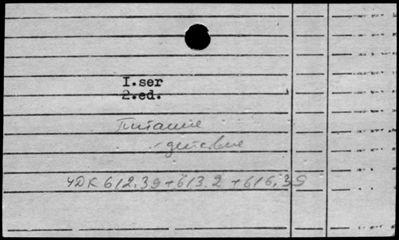 I.ser
2.ed.
Питание
- детское
УДК 612.39+613.2+616.39